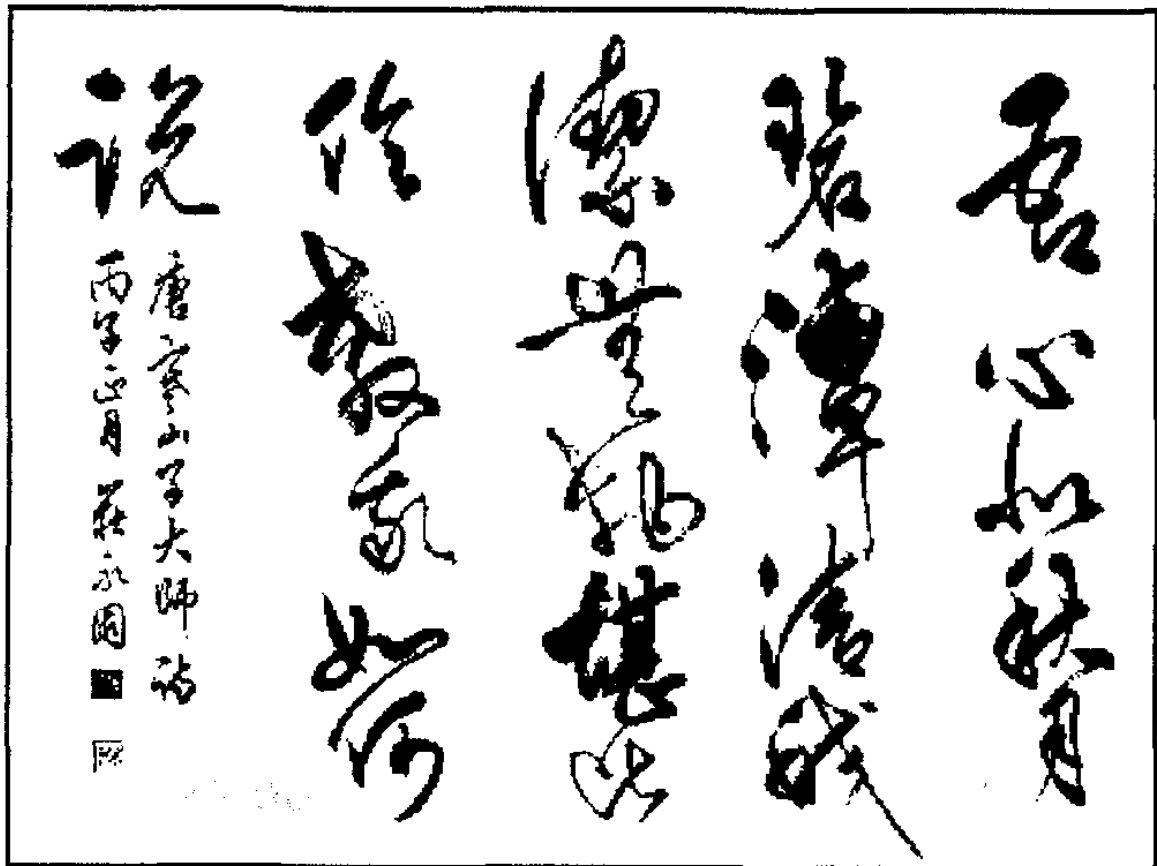 吾心似秋月
碧潭清皎
潔無物堪比
倫教我如何
說
唐寒山子大師詩
丙子月